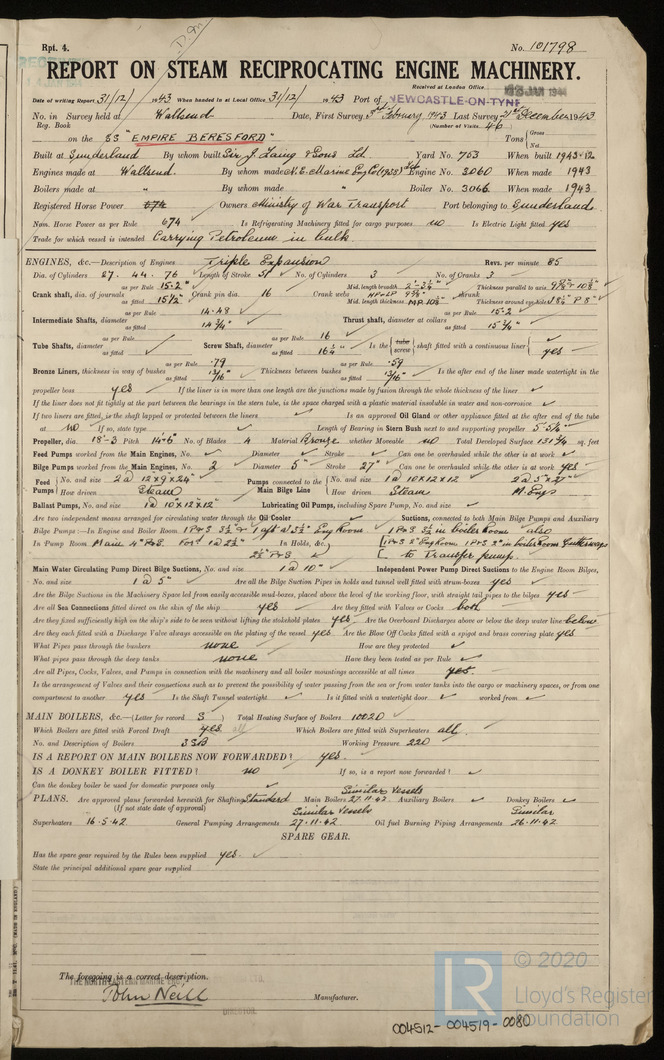 Rpt. 4.
No. 101798
REPORT ON STEAM RECIPROCATING ENGINE MACHINERY.
Received at London Office
JAN 1944
Date of writing Report 31/12/1943 When handed in at Local Office 31/12/1943 Port of NEWCASTLE-ON-TYNE
No. in Survey held at Wallsend Date, First Survey 3rd February 1943 Last Survey 21st December 1943
Reg. Book (Number of Visits 46)
on the SS "EMPIRE BERESFORD" Tons { Gross Net
Built at Sunderland By whom built Sir J Laing & Sons Ld Yard No. 753 When built 1943-12
Engines made at Wallsend By whom made N.E. Marine Eng Co (1938) Ltd Engine No. 3060 When made 1943
Boilers made at " By whom made " Boiler No. 3066 When made 1943
Registered Horse Power 674 Owners Ministry of War Transport Port belonging to Sunderland
Nom. Horse Power as per Rule 674 Is Refrigerating Machinery fitted for cargo purposes no Is Electric Light fitted yes
Trade for which vessel is intended Carrying Petroleum in bulk
ENGINES, &c.—Description of Engines Triple Expansion Revs. per minute 85
Dia. of Cylinders 27. 44. 76 Length of Stroke 51 No. of Cylinders 3 No. of Cranks 3
Crank shaft, dia. of journals as per Rule 15.2" as fitted 15 1/2" Crank pin dia. 16 Crank webs Mid. length breadth Mid. length thickness shrunk Thickness parallel to axis Thickness around eye-hole
Intermediate Shafts, diameter as per Rule 14.48 as fitted 14 3/4" Thrust shaft, diameter at collars as per Rule 15.2 as fitted 15 3/4"
Tube Shafts, diameter as per Rule as fitted Screw Shaft, diameter as per Rule 16 as fitted 16 1/4" Is the { tube screw } shaft fitted with a continuous liner { yes
Bronze Liners, thickness in way of bushes as per Rule .79 as fitted 13/16" Thickness between bushes as per Rule .59 as fitted 13/16" Is the after end of the liner made watertight in the
propeller boss yes If the liner is in more than one length are the junctions made by fusion through the whole thickness of the liner
If the liner does not fit tightly at the part between the bearings in the stern tube, is the space charged with a plastic material insoluble in water and non-corrosive
If two liners are fitted, is the shaft lapped or protected between the liners Is an approved Oil Gland or other appliance fitted at the after end of the tube
at no If so, state type Length of Bearing in Stern Bush next to and supporting propeller 5'-5 1/2"
Propeller, dia. 18-3 Pitch 14'-6" No. of Blades 4 Material Bronze whether Moveable no Total Developed Surface 131 3/4 sq. feet
Feed Pumps worked from the Main Engines, No. Diameter Stroke Can one be overhauled while the other is at work
Bilge Pumps worked from the Main Engines, No. 2 Diameter 5" Stroke 27" Can one be overhauled while the other is at work yes
Feed Pumps { No. and size 2 @ 12x9x24" How driven Steam Pumps connected to the Main Bilge Line { No. and size 1 @ 10x12x12 2 @ 5"x27" How driven Steam M. Engs
Ballast Pumps, No. and size 1 @ 10"x12"x12" Lubricating Oil Pumps, including Spare Pump, No. and size
Are two independent means arranged for circulating water through the Oil Cooler Suctions, connected to both Main Bilge Pumps and Auxiliary
Bilge Pumps:—In Engine and Boiler Room 1 P&S 3 1/2" & 1 aft @ 3 1/2" Eng Room 1 P&S 3 1/2" in boiler Room also
In Pump Room In Holds, &c. 2 1/2" P&S to Transfer pump.
Main Water Circulating Pump Direct Bilge Suctions, No. and size 1 @ 10" Independent Power Pump Direct Suctions to the Engine Room Bilges,
No. and size 1 @ 5" Are all the Bilge Suction Pipes in holds and tunnel well fitted with strum-boxes yes
Are the Bilge Suctions in the Machinery Space led from easily accessible mud-boxes, placed above the level of the working floor, with straight tail pipes to the bilges yes
Are all Sea Connections fitted direct on the skin of the ship yes Are they fitted with Valves or Cocks both
Are they fixed sufficiently high on the ship's side to be seen without lifting the stokehold plates yes Are the Overboard Discharges above or below the deep water line below
Are they each fitted with a Discharge Valve always accessible on the plating of the vessel yes Are the Blow Off Cocks fitted with a spigot and brass covering plate yes
What Pipes pass through the bunkers none How are they protected
What pipes pass through the deep tanks none Have they been tested as per Rule
Are all Pipes, Cocks, Valves, and Pumps in connection with the machinery and all boiler mountings accessible at all times yes.
Is the arrangement of Valves and their connections such as to prevent the possibility of water passing from the sea or from water tanks into the cargo or machinery spaces, or from one
compartment to another yes Is the Shaft Tunnel watertight Is it fitted with a watertight door worked from
MAIN BOILERS, &c.—(Letter for record S) Total Heating Surface of Boilers 10020
Which Boilers are fitted with Forced Draft all Which Boilers are fitted with Superheaters all.
No. and Description of Boilers 3 SB Working Pressure 220
IS A REPORT ON MAIN BOILERS NOW FORWARDED? yes.
IS A DONKEY BOILER FITTED? no If so, is a report now forwarded?
Can the donkey boiler be used for domestic purposes only
PLANS. Are approved plans forwarded herewith for Shafting Standard Main Boilers Similar Vessels 27.11.42 Auxiliary Boilers Donkey Boilers
(If not state date of approval)
Superheaters 16.5.42 General Pumping Arrangements Similar Vessels 27.11.42 Oil fuel Burning Piping Arrangements Similar 26.11.42
SPARE GEAR.
Has the spare gear required by the Rules been supplied yes.
State the principal additional spare gear supplied
The foregoing is a correct description.
THE NORTH EASTERN MARINE
John Neill Manufacturer.
DIRECTOR
004512-004519-0080
© 2020
LR
Lloyd's Register
Foundation